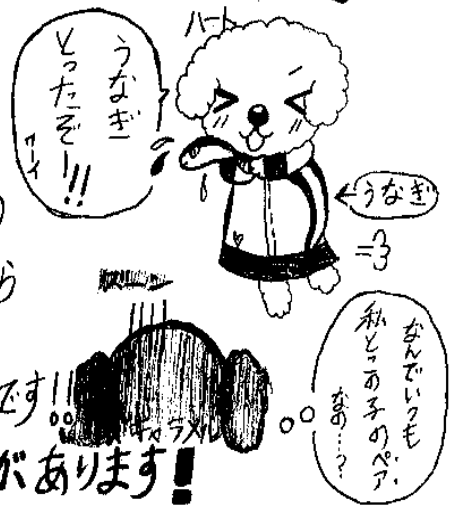 ハート
うなぎ
とったぞー!!
ワーイ
うなぎ
なんでいつも
私とこの子のペア
なの…?
キャラメル
ら
です!!
があります!